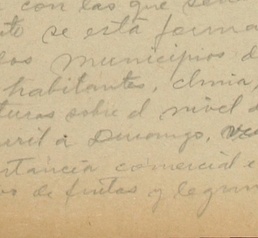 con las que
se está forma
los municipios d
habitantes, clima,
turas sobre el nivel d
a Durango,
tancia comercial e
de frutas y legum